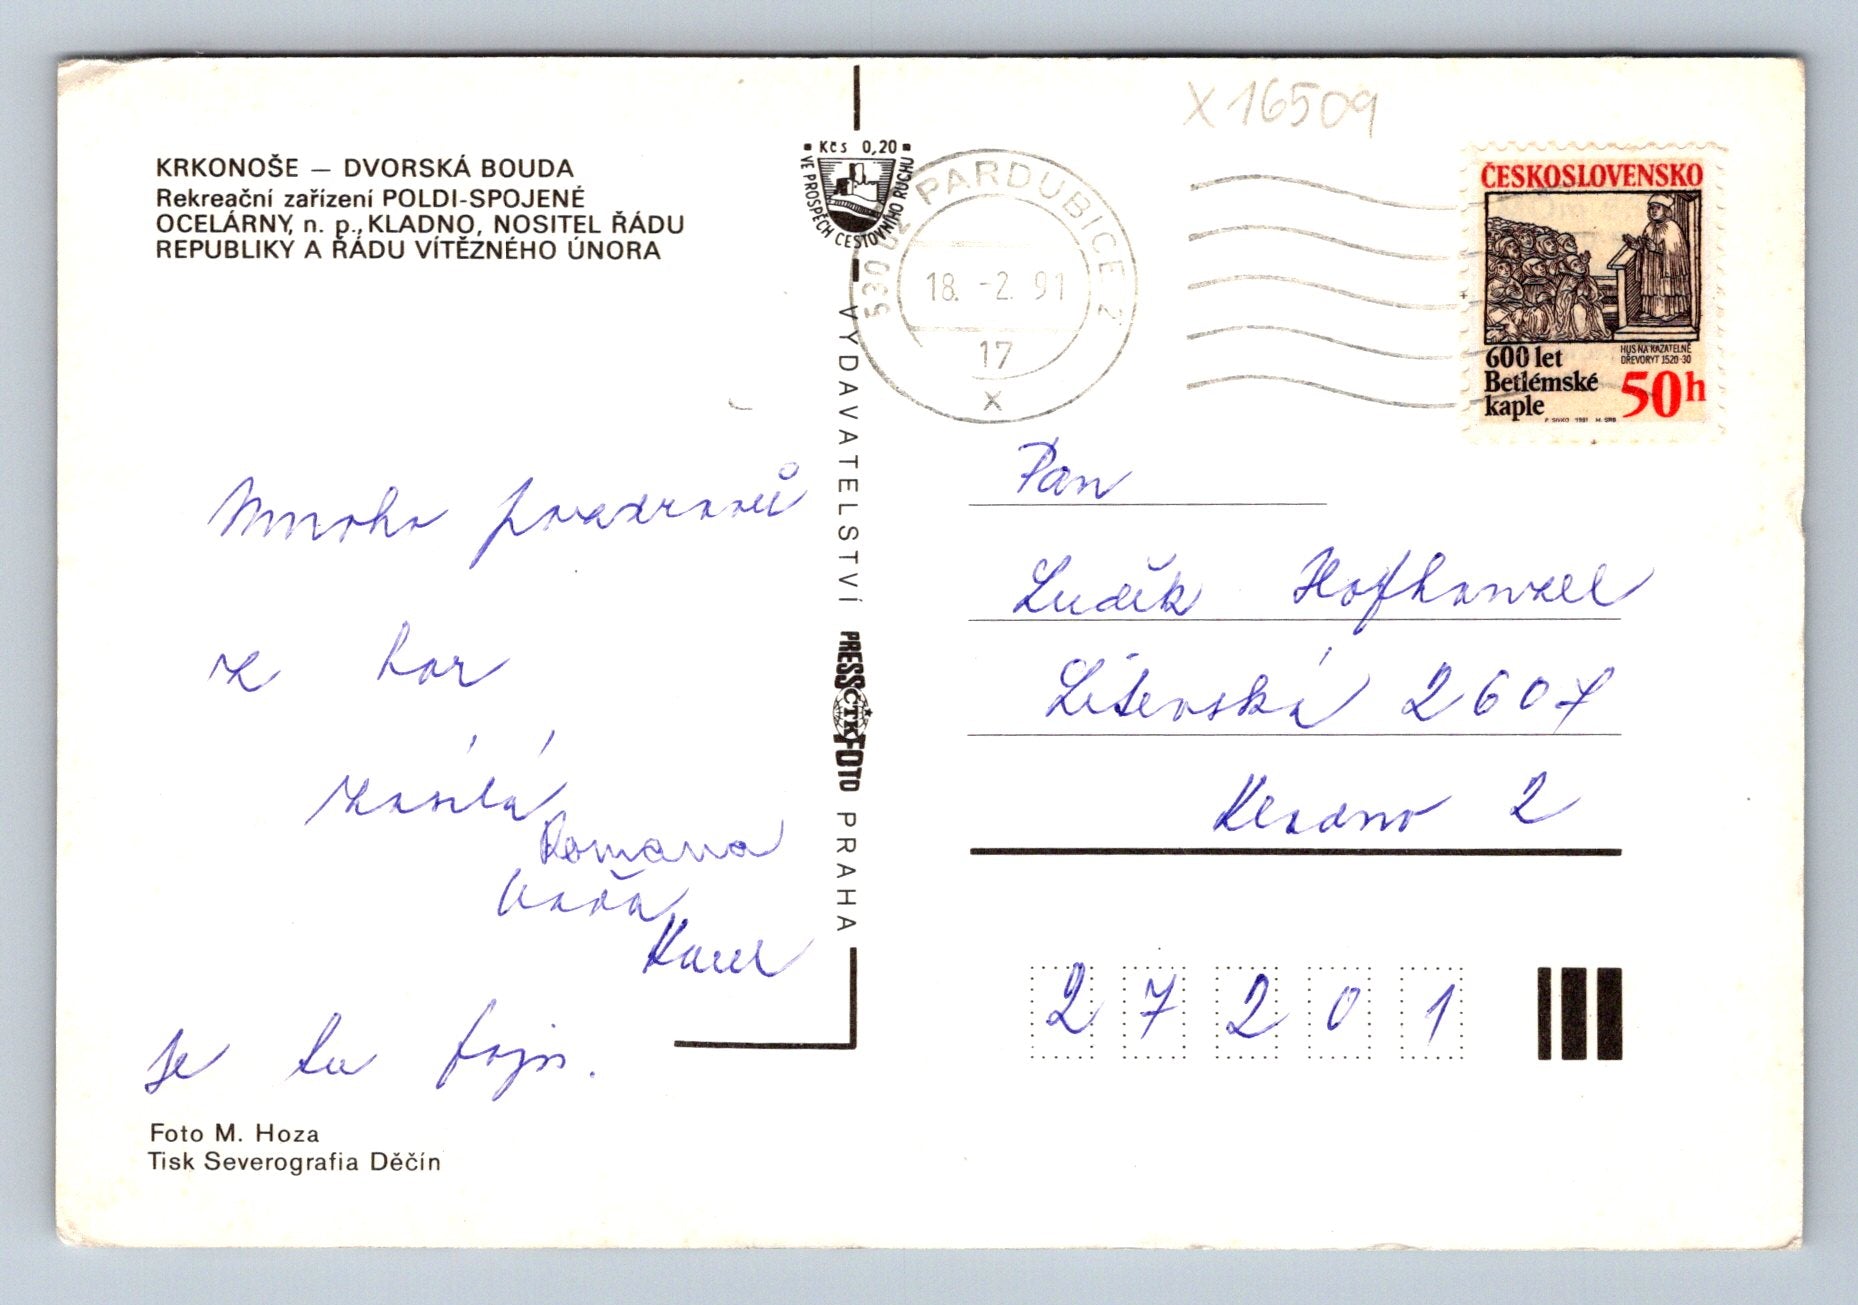 KRKONOŠE – DVORSKÁ BOUDA
Rekreační zařízení POLDI-SPOJENÉ
OCELÁRNY, n. p., KLADNO, NOSITEL ŘÁDU
REPUBLIKY A ŘÁDU VÍTĚZNÉHO ÚNORA
Mnoho pozdravů
z hor
zasílá
Romana
Karel
se tu
Foto M. Hoza
Tisk Severografia Děčín
Kčs 0,20
VE PROSPĚCH CESTOVNÍHO RUCHU
VYDAVATELSTVÍ PRESSFOTO PRAHA
ČTK
530 02 PARDUBICE 2
18. -2. 91
17
x
X 16509
ČESKOSLOVENSKO
HUS NA KAZATELNĚ
DŘEVORYT 1520-30
600 let
Betlémské
kaple
50h
P. SIVKO 1991 M. SRB
Pan
Luděk
Litevská 2607
Kladno 2
2 7 2 0 1